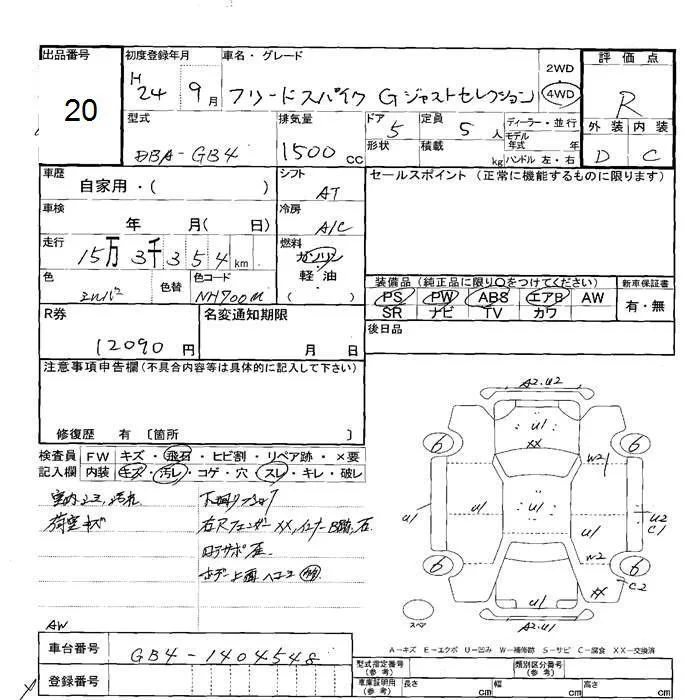 出品番号 初度登録年月 車名・グレード 評価点
20
H 24 9月 フリードスパイク Gジャストセレクション 2WD 4WD R
型式 排気量 ドア 5 定員 5人 ディーラー・並行 外装 内装
DBA-GB4 1500cc 形状 積載 kg モデル年式 年 ハンドル 左・右 D C
車歴 シフト セールスポイント(正常に機能するものに限ります)
自家用・( ) AT
車検 冷房
年 月( 日) A/C
走行 燃料
15万3千354km ガソリン
軽・油
( )
色 色替 色コード 装備品(純正品に限り○をつけてください) 新車保証書
シルバー NH700M PS PW ABS エアB AW 有・無
SR ナビ TV カワ
R券 名変通知期限 後日品
12090円 月 日
注意事項申告欄(不具合内容等は具体的に記入して下さい)
修復歴 有 〔箇所 〕
検査員 FW キズ・飛石・ヒビ割・リペア跡・×要
記入欄 内装 キズ・汚レ・コゲ・穴・スレ・キレ・破レ
荷室キズ
AW
A2.U2
U1
XX
6 6
W2
U1 U1 U1 U2
C1
W2
6 6
XX C2
U1
A2.U1
スペア
A-キズ E-エクボ U-凹み W-補修跡 S-サビ C-腐食 XX-交換済
車台番号 GB4-1404548
型式指定番号(参考) 類別区分番号(参考)
登録番号 車庫証明用(参考) 長さ cm 幅 cm 高さ cm